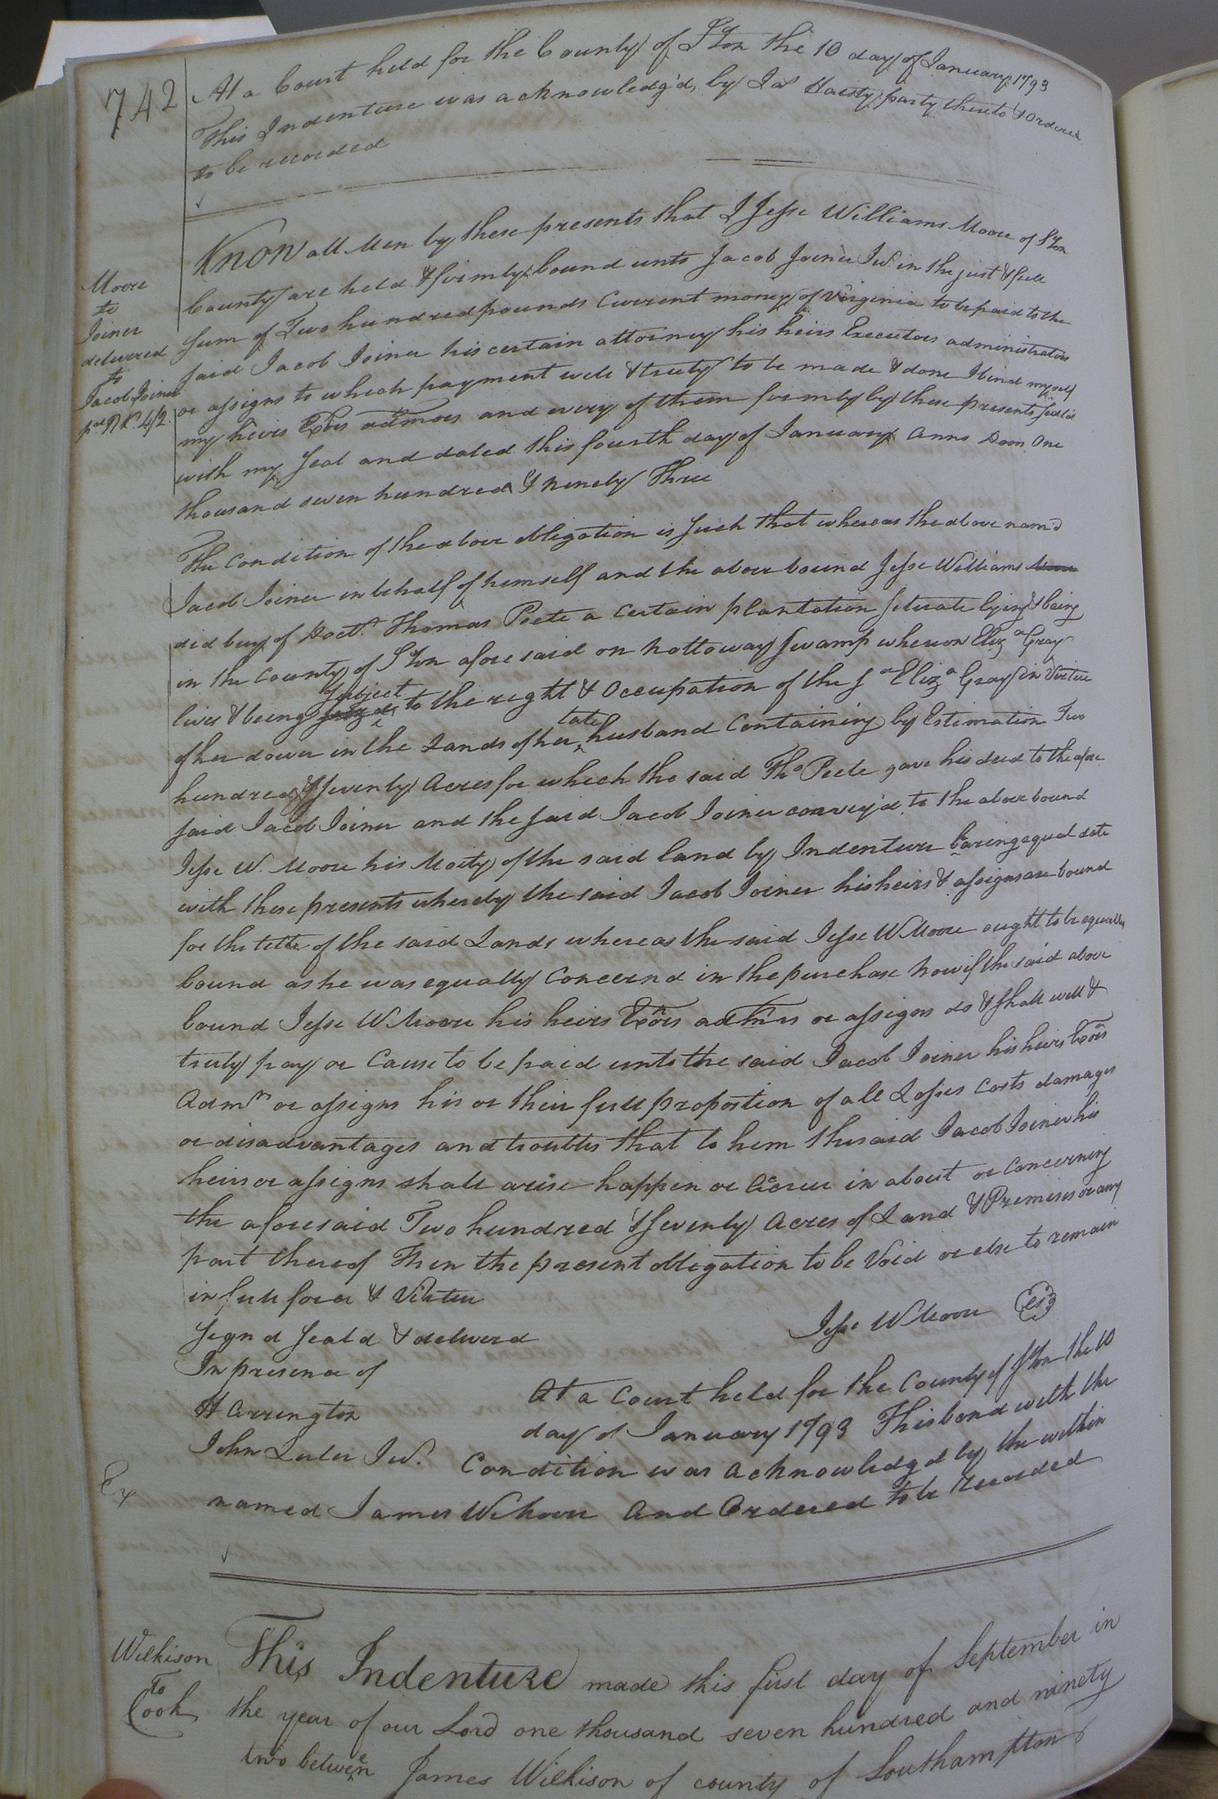 742
At a Court held for the County of S'ton the 10 day of January 1793
This Indenture was acknowledg'd by Jas Hasty party thereto & Ordered
to be recorded
Moore
to
Joiner
delivered
to
Jacob Joiner
Know all Men by these presents that I Jesse Williams Moore of S'ton
County are held & firmly bound unto Jacob Joiner Jur. in the just & full
Sum of Two hundred pounds Current money of Virginia to be paid to the
said Jacob Joiner his certain attorney his heirs Executors administrators
or assigns to which payment well & truly to be made & done I bind myself
my heirs Exõrs admõrs and every of them firmly by these presents Seal'd
with my Seal and dated this fourth day of January Anno Dom One
thousand seven hundred & ninety Three
The Condition of the above obligation is such that whereas the above nam'd
Jacob Joiner in behalf of himself and the above bound Jesse Williams Moore
did buy of Doctr. Thomas Peete a certain plantation situate lying & being
in the County of S'ton aforesaid on Nottoway Swamp whereon Eliza Gray
lives & being Subject to the right & Occupation of the sd Eliza Gray in Virtue
of her dower in the Lands of her late husband Containing by Estimation Two
hundred & seventy Acres for which the said Tho Peete gave his deed to the afore
said Jacob Joiner and the said Jacob Joiner convey'd to the above bound
Jesse W. Moore his Moity of the said land by Indenture baring equal date
with these presents whereby the said Jacob Joiner his heirs & assigns are bound
for the title of the said Lands whereas the said Jesse W Moore ought to be equally
bound as he was equally Concernd in the purchase Now if the said above
bound Jesse W Moore his heirs Exõrs admrs or assigns do & shall well &
truly pay or Cause to be paid unto the said Jacob Joiner his heirs Exõrs
Admrs or assigns his or their full proportion of all Losses Costs damages
or disadvantages and troubles that to him the said Jacob Joiner his
heirs or assigns shall arise happen or Acrue in about or Concerning
the aforesaid Two hundred & seventy Acres of Land & Premises or any
part thereof Then the present obligation to be Void or else to remain
in full force & Virtue
Signd Seald & deliverd
In presence of
Jesse W Moore
H Arrington
John Luter Jur.
At a Court held for the County of S'ton the 10
day of January 1793 This bond with the
Condition was acknowledgd by the within
Ex
named James W Moore and Ordered to be Recorded
Wilkison
To
Cook
This Indenture made this first day of September in
the year of our Lord one thousand seven hundred and ninety
two between James Wilkison of county of Southampton